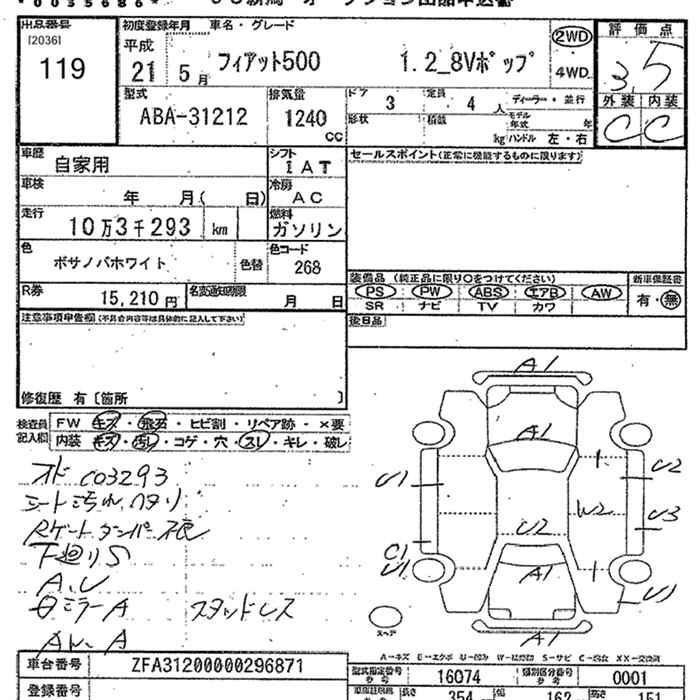 *0035686*
出品番号 初度登録年月 車名・グレード 評価点
[2036]
119
平成 21年 5月 フィアット500 1.2_8Vポップ 2WD 4WD
3.5
型式 ABA-31212 排気量 1240 cc
ドア 3 定員 4 人 ディーラー・並行
形状 積載 kg モデル年式 年 ハンドル 左・右
外装 内装
C C
車歴 自家用 シフト IAT
セールスポイント(正常に機能するものに限ります)
車検 年 月( 日) 冷房 AC
走行 10万3千293 km 燃料 ガソリン
色 ボサノバホワイト 色替 色コード 268
装備品 (純正品に限り○をつけてください) 新車保証書
PS PW ABS エアB AW 有・無
SR ナビ TV カワ
R券 15,210円 名変通知期限 月 日
後日品
注意事項申告欄(不具合内容等は具体的に記入して下さい)
修復歴 有〔箇所 〕
検査員記入欄 FW キズ・飛石・ヒビ割・リペア跡・×要
内装 キズ・汚れ・コゲ・穴・スレ・キレ・破レ
オド 003293
シート汚れ、ヘタリ
Rゲートダンパー不良
下廻りS
A,U
ミラーA スタッドレス
A1
A1
U1 U2
W2 U3
U2
C1
U1
A1
U1
A1
スペア
A-キズ E-エクボ U-凹み W-補修跡 S-サビ C-腐食 XX-交換済
車台番号 ZFA31200000296871
型式指定番号 参考 16074 類別区分番号 参考 0001
登録番号
長さ 354 幅 162 高さ 151